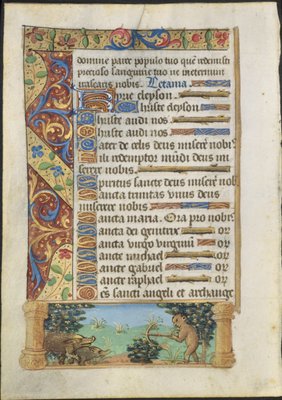 domine parce populo tuo quē redemisti
precioso sanguine tuo ne in eternum
irascaris nobis. Letania.
Kyrie eleyson
Christe eleyson
Christe audi nos
Christe audi nos
Pater de celis deus miserē nobꝭ
Fili redemptor mūdi deus mi
serere nobis
Spiritus sancte deus miserē nobꝭ
Sancta trinitas vnus deus
miserere nobis
Sancta maria. Ora pro nobꝭ
Sancta dei genitrix or
Sancta virgo virginū or
Sancte michael or
Sancte gabriel or
Sancte raphael or
Oēs sancti angeli et archange